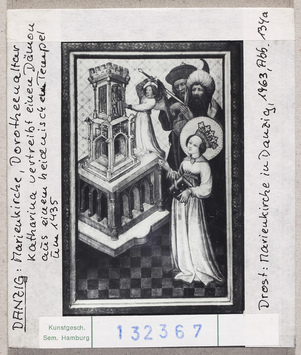 DANZIG: Marienkirche, Dorotheenaltar
Katharina vertreibt einen Dämon
aus einem heidnischen Tempel
um 1435
Drost: Marienkirche in Danzig, 1963, Abb. 134a
Kunstgesch.
Sem. Hamburg
132367